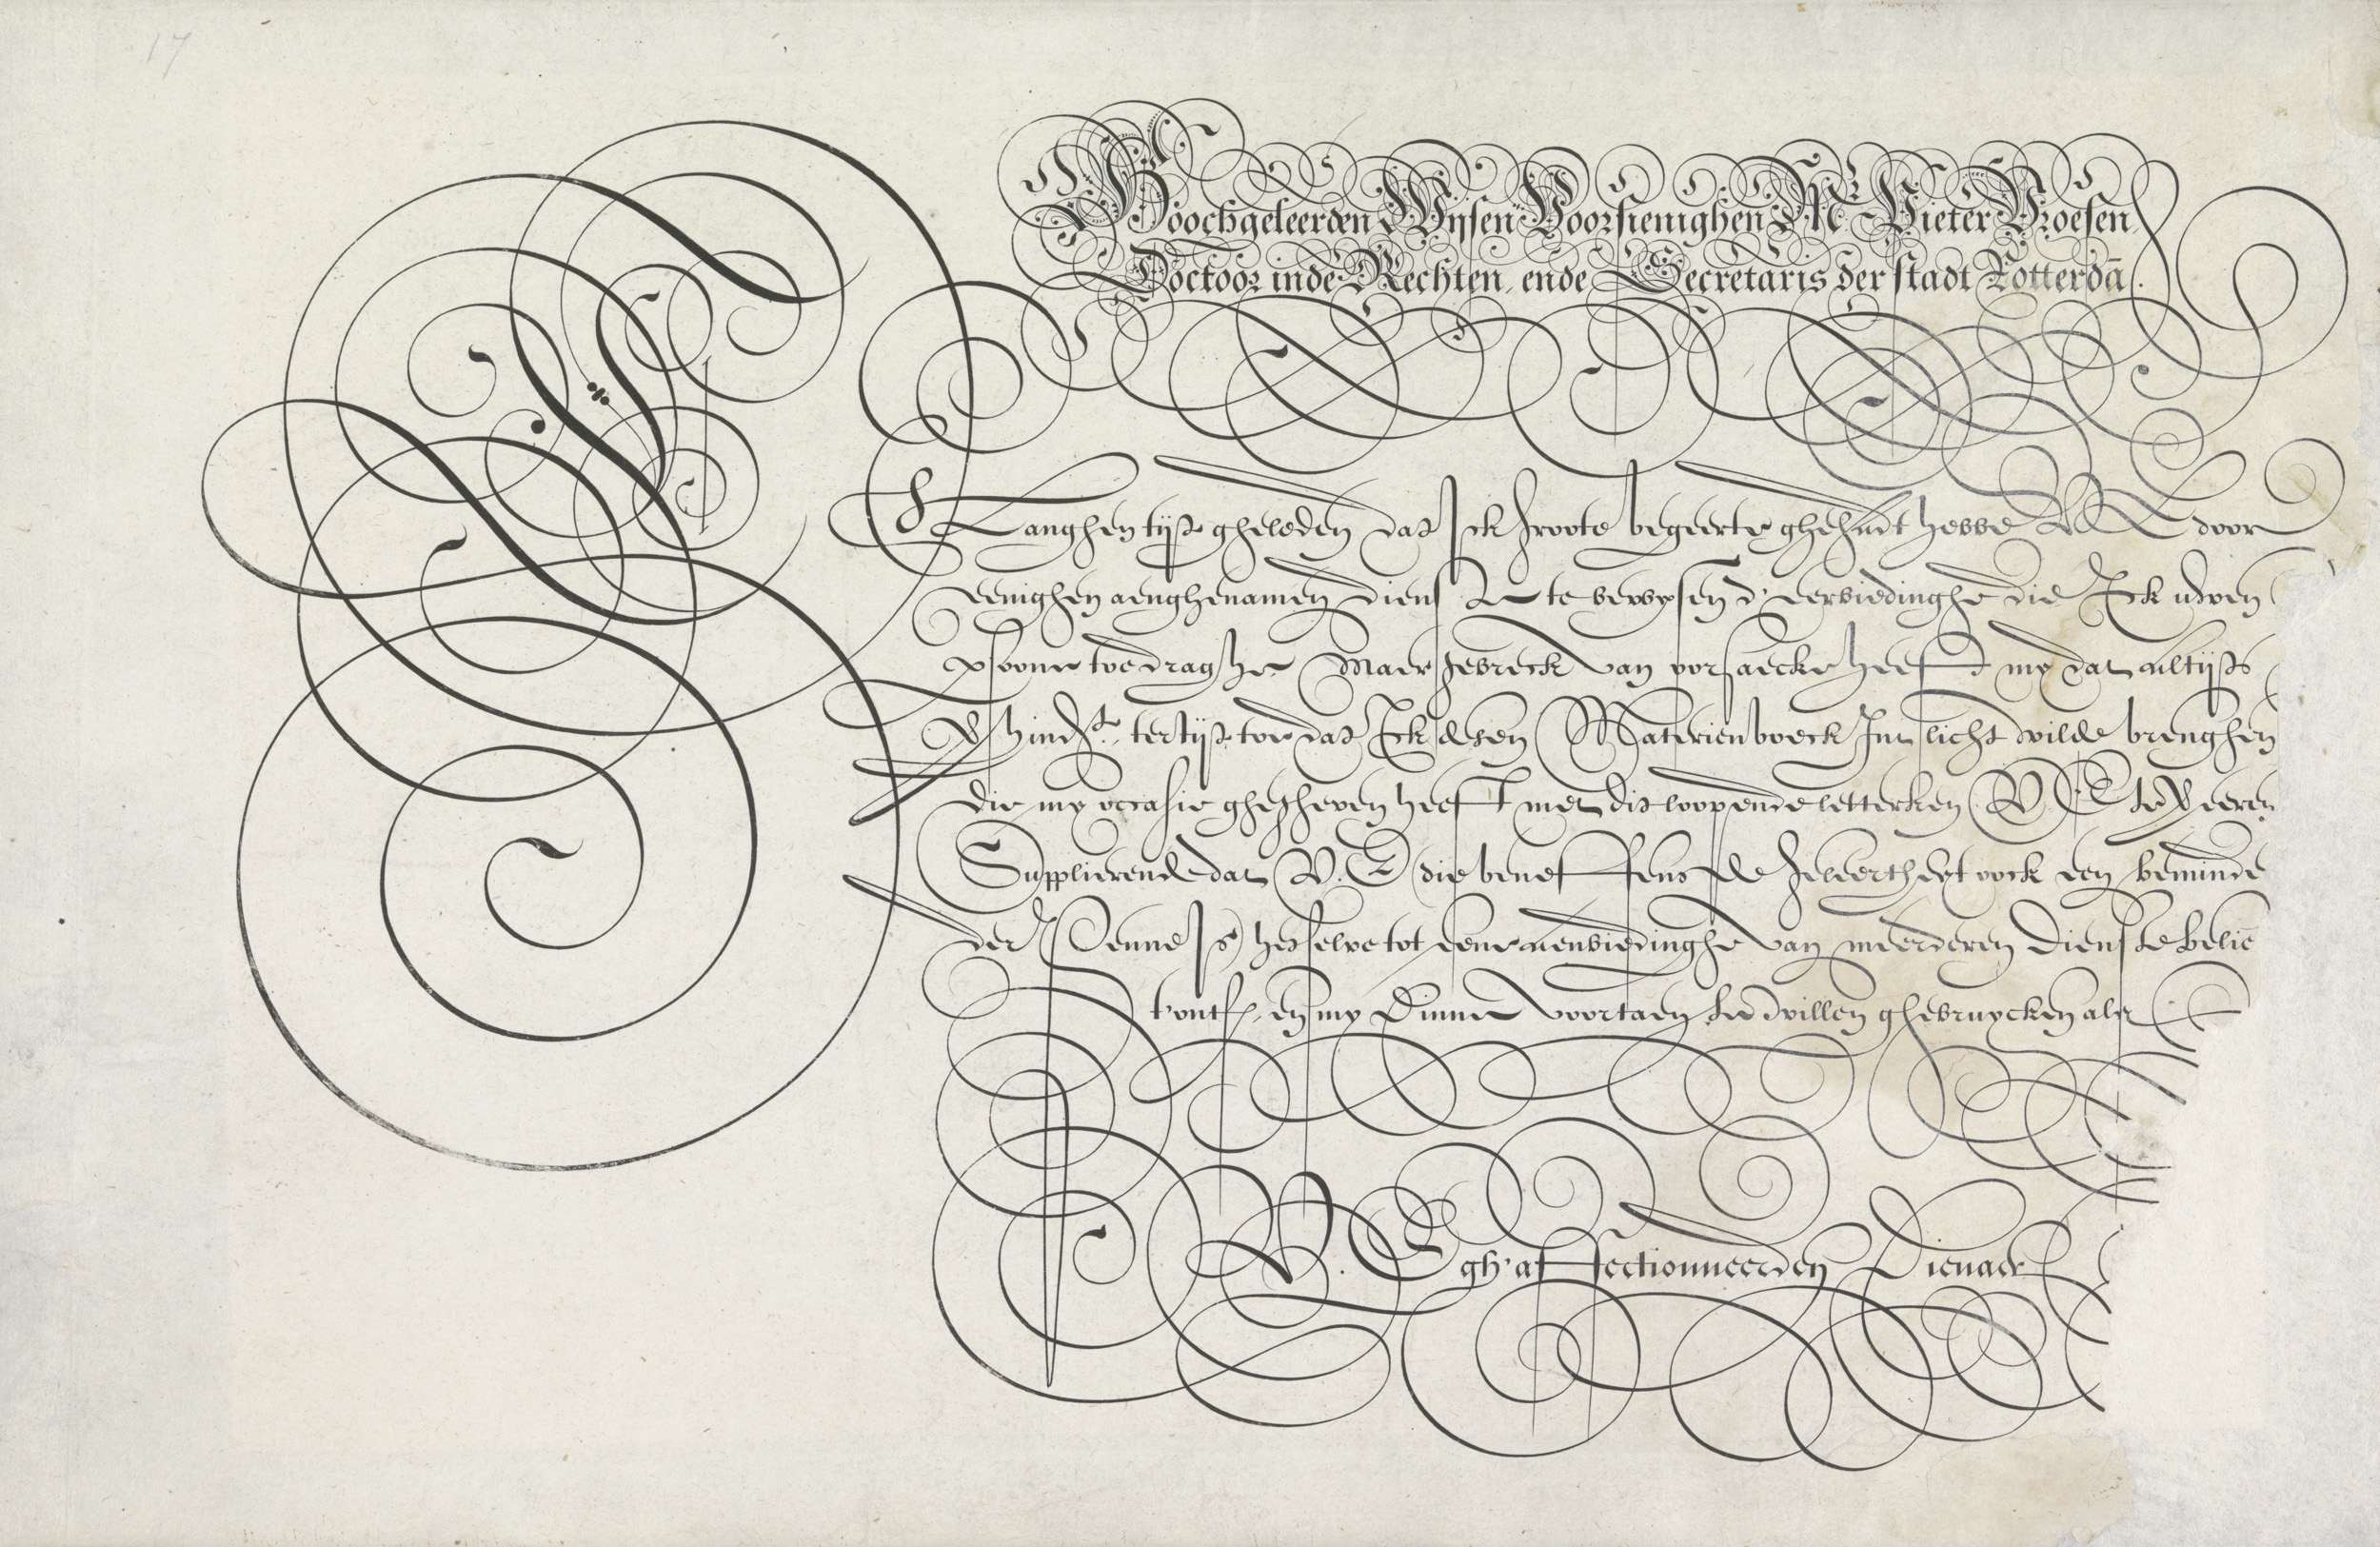 17
Hoochgeleerden Wijsen Voorsienighen Mr. Pieter Vroesen
Doctoor inde Rechten, ende Secretaris der stadt Rotterdā.
Langhen tijt gheleden dat Ick groote begeerte ghehadt hebbe V E door
eenighen aenghenamen dienst te bewysen d'eerbiedinghe die Ick uwen
psoone toedraghe Maer gebreck van oorsaecke heeft my dat altijts
tertijt toe dat Ick desen Materien boeck Int licht wilde brenghen
die my occasie ghegheven heeft met dit loopende letterken V E te Veeren
Supplierende dat V. E die beneffens de geleertheyt oock een beminde
der Penne Is, hetselve tot eene aenbiedinghe van meerderen dienste belie
t'ontf, en my Dinne voortaen te willen ghebruycken als
V. E gh'affectionneerden Dienaer